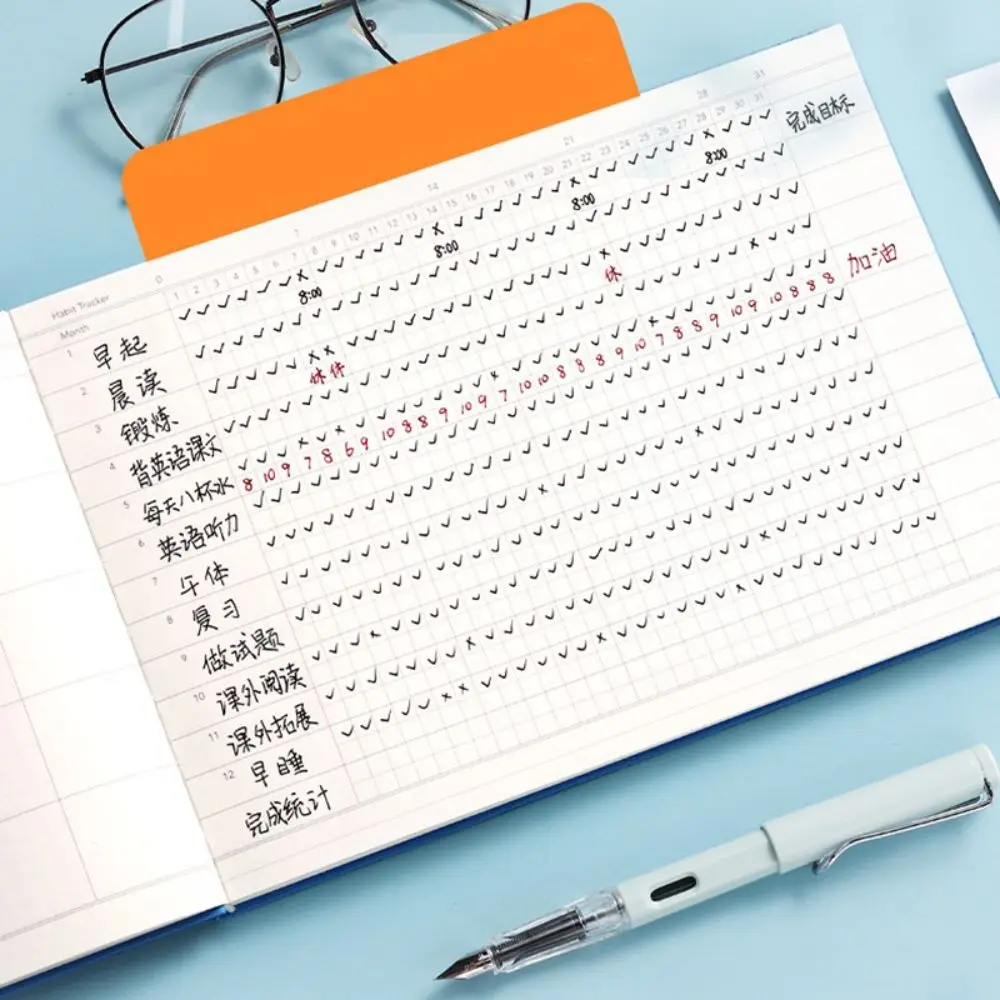 0 7 14 21 28 31
1 2 3 4 5 6 7 8 9 10 11 12 13 14 15 16 17 18 19 20 21 22 23 24 25 26 27 28 29 30 31
Habit Tracker
Month
1 早起 完成目标
8:00 8:00 8:00 8:00
2 晨读
3 锻炼
休休 休
4 背英语课文
5 每天八杯水 8 10 9 7 8 6 9 10 8 8 9 10 9 7 10 10 8 8 8 9 10 7 8 8 9 10 9 10 8 8 8 加油
6 英语听力
7 午体
8 复习
9 做试题
10 课外阅读
11 课外拓展
12 早睡
完成统计